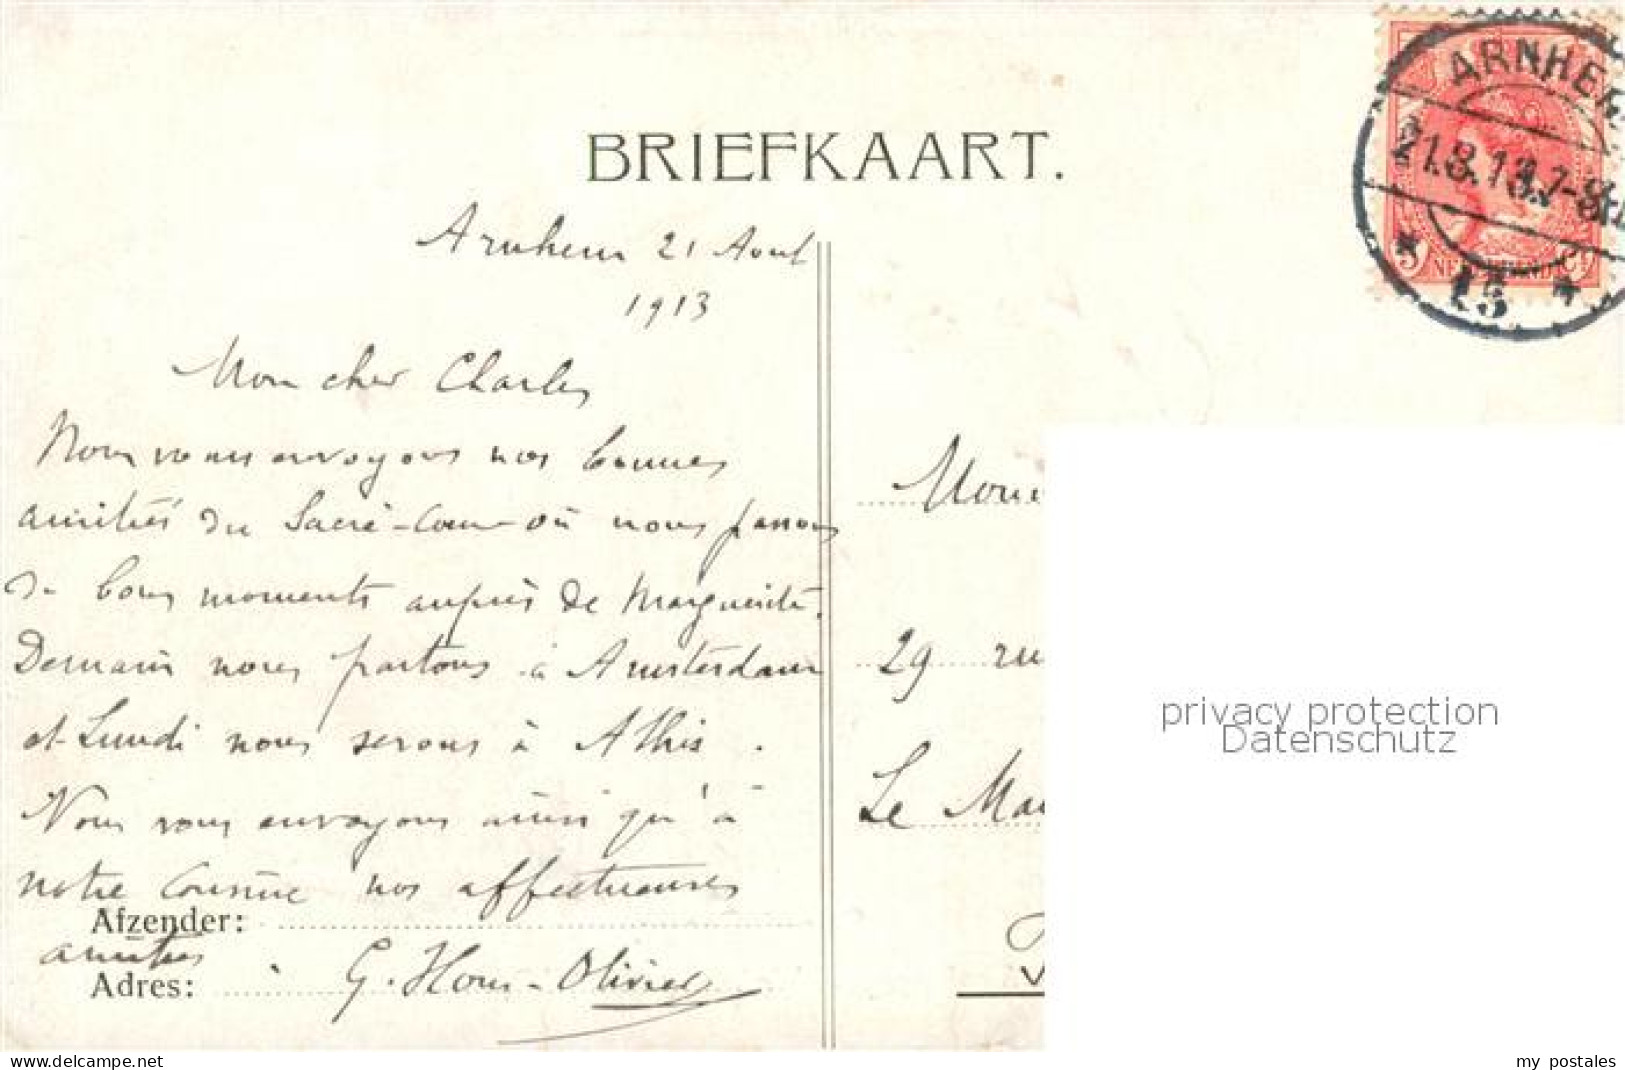 BRIEFKAART.
ARNHEM
21.8.13.7-8
15
5 NEDERLAND CT
Arnhem 21 Aout
1913
Mon cher Charles
Nous vous envoyons nos bonnes
amitiés du Sacré-Coeur où nous passons
de bons moments auprès de Marguerite.
Demain nous partons à Amsterdam
et Lundi nous serons à Athis.
Nous vous envoyons ainsi qu'à
notre Cousine nos affectueuses
Afzender:
amitiés
Adres:
G. -Olivier
29 ru
Le Ma
privacy protection
Datenschutz
my postales
https://www.delcampe.net